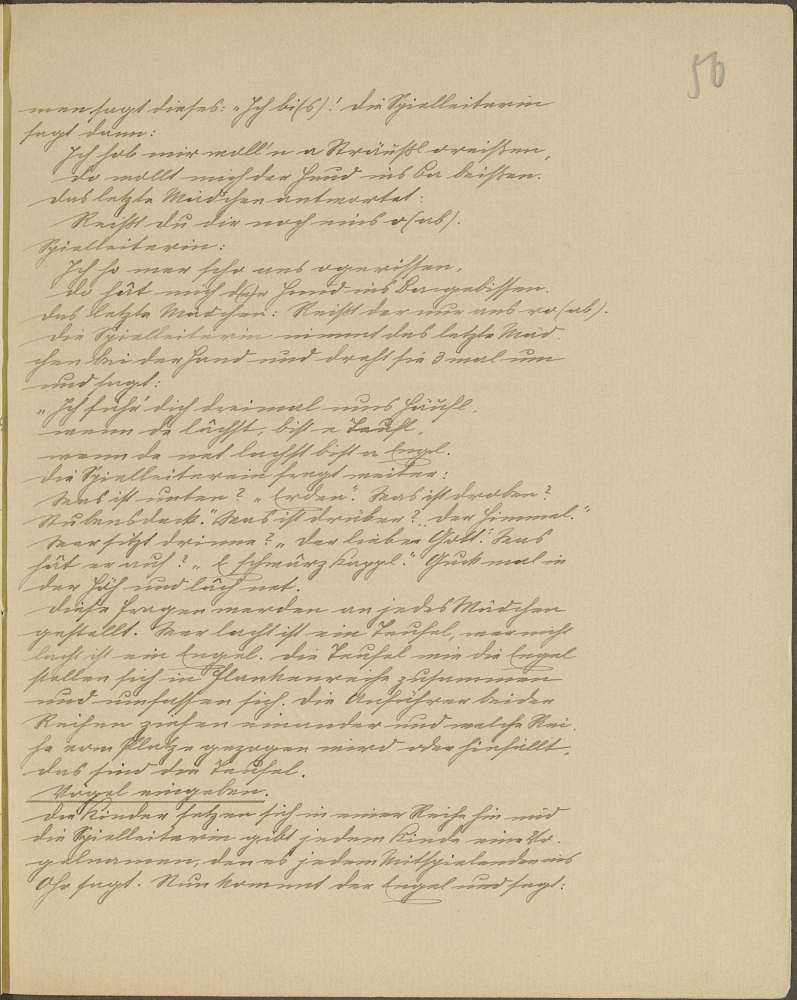 56
men sagt dieses: „Ich bi(s)! Die Spielleiterin
sagt dann:
Ich hob mir woll'n a Sträußl oreißen,
do wollt mich der Hund ins Ba beißen.
Das letzte Mädchen antwortet:
Reißt du dir noch eins o(ab).
Spielleiterin:
Ich ho mer scho ans ogerissen,
do hät mich d(e)r Hund ins Ba gebissen.
Das letzte Mädchen: Reißt der nur ans ro(ab).
Die Spielleiterin nimmt das letzte Mäd
chen bei der Hand und dreht sie 3 mal um
und sagt:
„Ich führ dich dreimal ums Häusl,
wenn de lächst, bist e Teufl,
wenn de net lachst bist a Engl.
Die Spielleiterin fragt weiter:
Was ist unten? „Erden". Was ist droben?
Stubensdeck." Was ist drüber? „Der Himmel."
Wer sitzt drinne? „Der liebe Gott." Was
hät er auf? „E schwarz Kappl." Guck mal in
der Höh und läch net.
Diese Fragen werden an jedes Mädchen
gestellt. Wer lacht ist ein Teufel, wer nicht
lacht ist ein Engel. Die Teufel wie die Engel
stellen sich in Flankenreihe zusammen
und umfassen sich. Die Anführer beider
Reihen ziehen einander und welche Rei
he vom Platze gezogen wird oder hinfällt,
das sind die Teufel.
Vögel eingeben.
Die Kinder setzen sich in einer Reihe hin und
die Spielleiterin gibt jedem Kinde eine Vo
gelnamen, den es jedem Mitspielenden ins
Ohr sagt. Nun kommt der Engel und sagt: